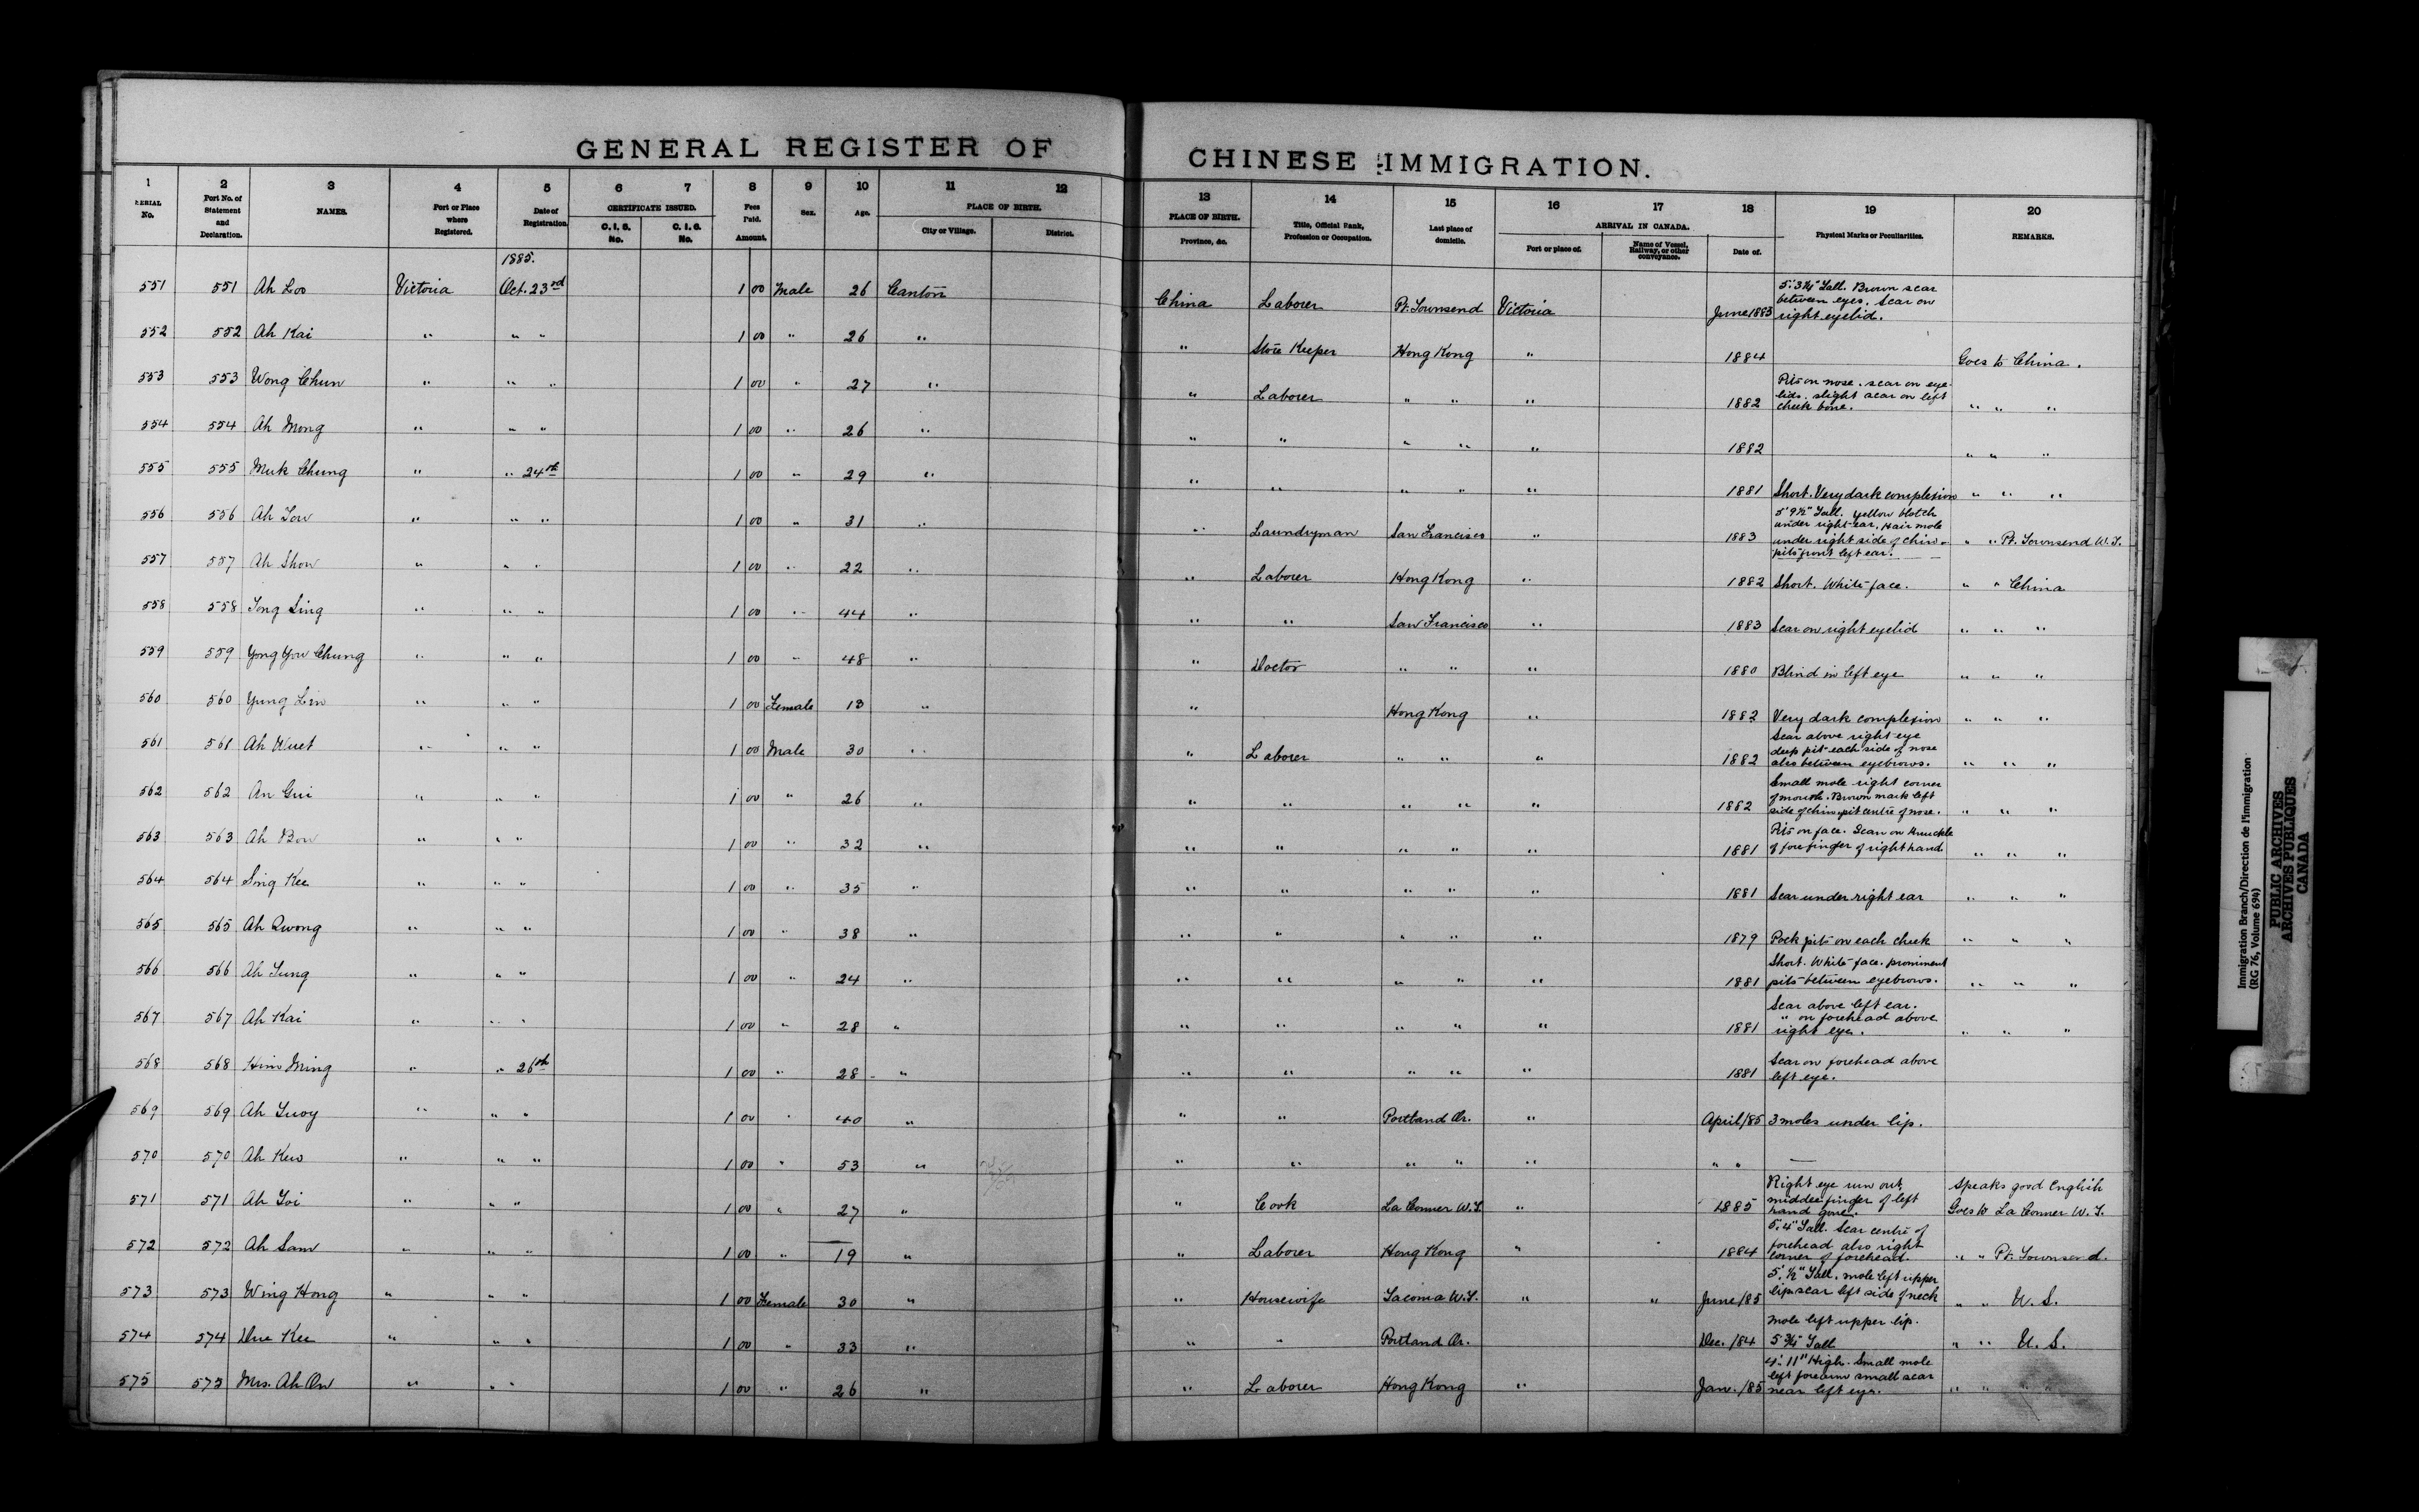 GENERAL REGISTER OF CHINESE IMMIGRATION.
1 2 3 4 5 6 7 8 9 10 11 12 13 14 15 16 17 18 19 20
SERIAL No. Port No. of Statement and Declaration. NAMES. Port or Place where Registered. Date of Registration. CERTIFICATE ISSUED. C. I. 5. No. C. I. 6. No. Fees Paid. Amount. Sex. Age. PLACE OF BIRTH. City or Village. District. PLACE OF BIRTH. Province, &c. Title, Official Rank, Profession or Occupation. Last place of domicile. ARRIVAL IN CANADA. Port or place of. Name of Vessel, Railway, or other conveyance. Date of. Physical Marks or Peculiarities. REMARKS.
1885.
551 551 Ah Loo Victoria Oct. 23rd 1 00 Male 26 Canton China Laborer Pt. Townsend Victoria June 1883 5' 3¾" Tall. Brown scar between eyes. Scar on right eyelid.
552 552 Ah Kai " " " 1 00 " 26 " " Store Keeper Hong Kong " 1884 Goes to China.
553 553 Wong Chun " " " 1 00 " 27 " " Laborer " " " 1882 Pits on nose. scar on eye-lids. slight scar on left cheek bone. " " "
554 554 Ah Mong " " " 1 00 " 26 " " " " " " 1882 " " "
555 555 Muk Chung " " 24th 1 00 " 29 " " " " " " 1881 Short. Very dark complexion " " "
556 556 Ah Tow " " " 1 00 " 31 " " Laundryman San Francisco " 1883 5' 9½" Tall. Yellow blotch under right ear, Hair mole under right side of chin - pits front left ear. " " Pt. Townsend W.T.
557 557 Ah Show " " " 1 00 " 22 " " Laborer Hong Kong " 1882 Short. White face. " " China
558 558 Tong Sing " " " 1 00 " 44 " " " San Francisco " 1883 Scar on right eyelid " " "
559 559 Yong Yow Chung " " " 1 00 " 48 " " Doctor " " " 1880 Blind in left eye " " "
560 560 Yung Lin " " " 1 00 Female 13 " " Hong Kong " 1882 Very dark complexion " " "
561 561 Ah Wuet " " " 1 00 Male 30 " " Laborer " " " 1882 Scar above right eye deep pit each side of nose also between eyebrows. " " "
562 562 An Gui " " " 1 00 " 26 " " " " " " 1882 Small mole right corner of mouth. Brown mark left side of chin, pit centre of nose. " " "
563 563 Ah Bow " " " 1 00 " 32 " " " " " " 1881 Pits on face. Scar on Knuckle of forefinger of right hand " " "
564 564 Sing Kee " " " 1 00 " 35 " " " " " " 1881 Scar under right ear " " "
565 565 Ah Quong " " " 1 00 " 38 " " " " " " 1879 Pock pits on each cheek " " "
566 566 Ah Lung " " " 1 00 " 24 " " " " " " 1881 Short. White face. prominent pits between eyebrows. " " "
567 567 Ah Kai " " " 1 00 " 28 " " " " " " 1881 Scar above left ear. " on forehead above right eye. " " "
568 568 Him Ming " " 26th 1 00 " 28 " " " " " " 1881 Scar on forehead above left eye.
569 569 Ah Suoy " " " 1 00 " 40 " " " Portland Or. " April/85 3 moles under lip.
570 570 Ah Kew " " " 1 00 " 53 " " " " " " " " —
571 571 Ah Toi " " " 1 00 " 27 " " Cook La Conner W.T. " 1885 Right eye run out, middle finger of left hand gone. Speaks good English Goes to La Conner W.T.
572 572 Ah Sam " " " 1 00 " 19 " " Laborer Hong Kong " 1884 5' 4" Tall. Scar centre of forehead also right corner of forehead. " " Pt. Townsend.
573 573 Wing Hong " " " 1 00 Female 30 " " Housewife Tacoma W.T. " " June/85 5' ½" Tall, mole left upper lip scar left side of neck " " U. S.
574 574 Due Kee " " " 1 00 " 33 " " " Portland Or. Dec. /84 Mole left upper lip. 5 ¾" Tall " " U. S.
575 575 Mrs. Ah On " " " 1 00 " 26 " " Laborer Hong Kong " Jan. /85 4' 11" High. Small mole left forearm small scar near left eye. " " " "
Immigration Branch/Direction de l'immigration
(RG 76, Volume 694)
PUBLIC ARCHIVES
ARCHIVES PUBLIQUES
CANADA